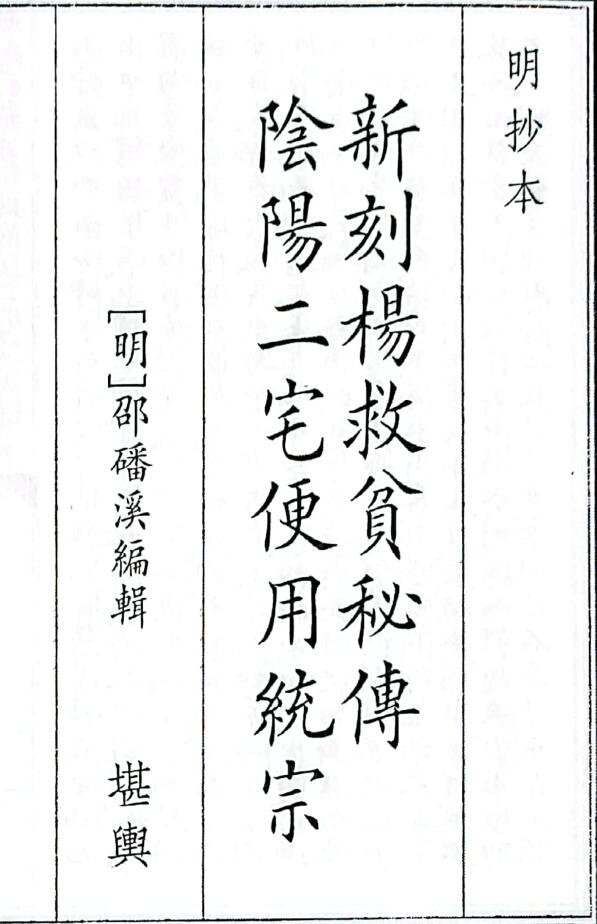 明抄本
新刻楊救貧秘傳
陰陽二宅便用統宗
[明]邵磻溪編輯
堪輿